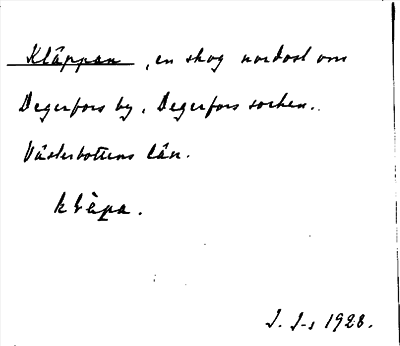 Kläppan, en skog nordost om
Degerfors by, Degerfors socken.
Västerbottens län.
J. J-s 1928.